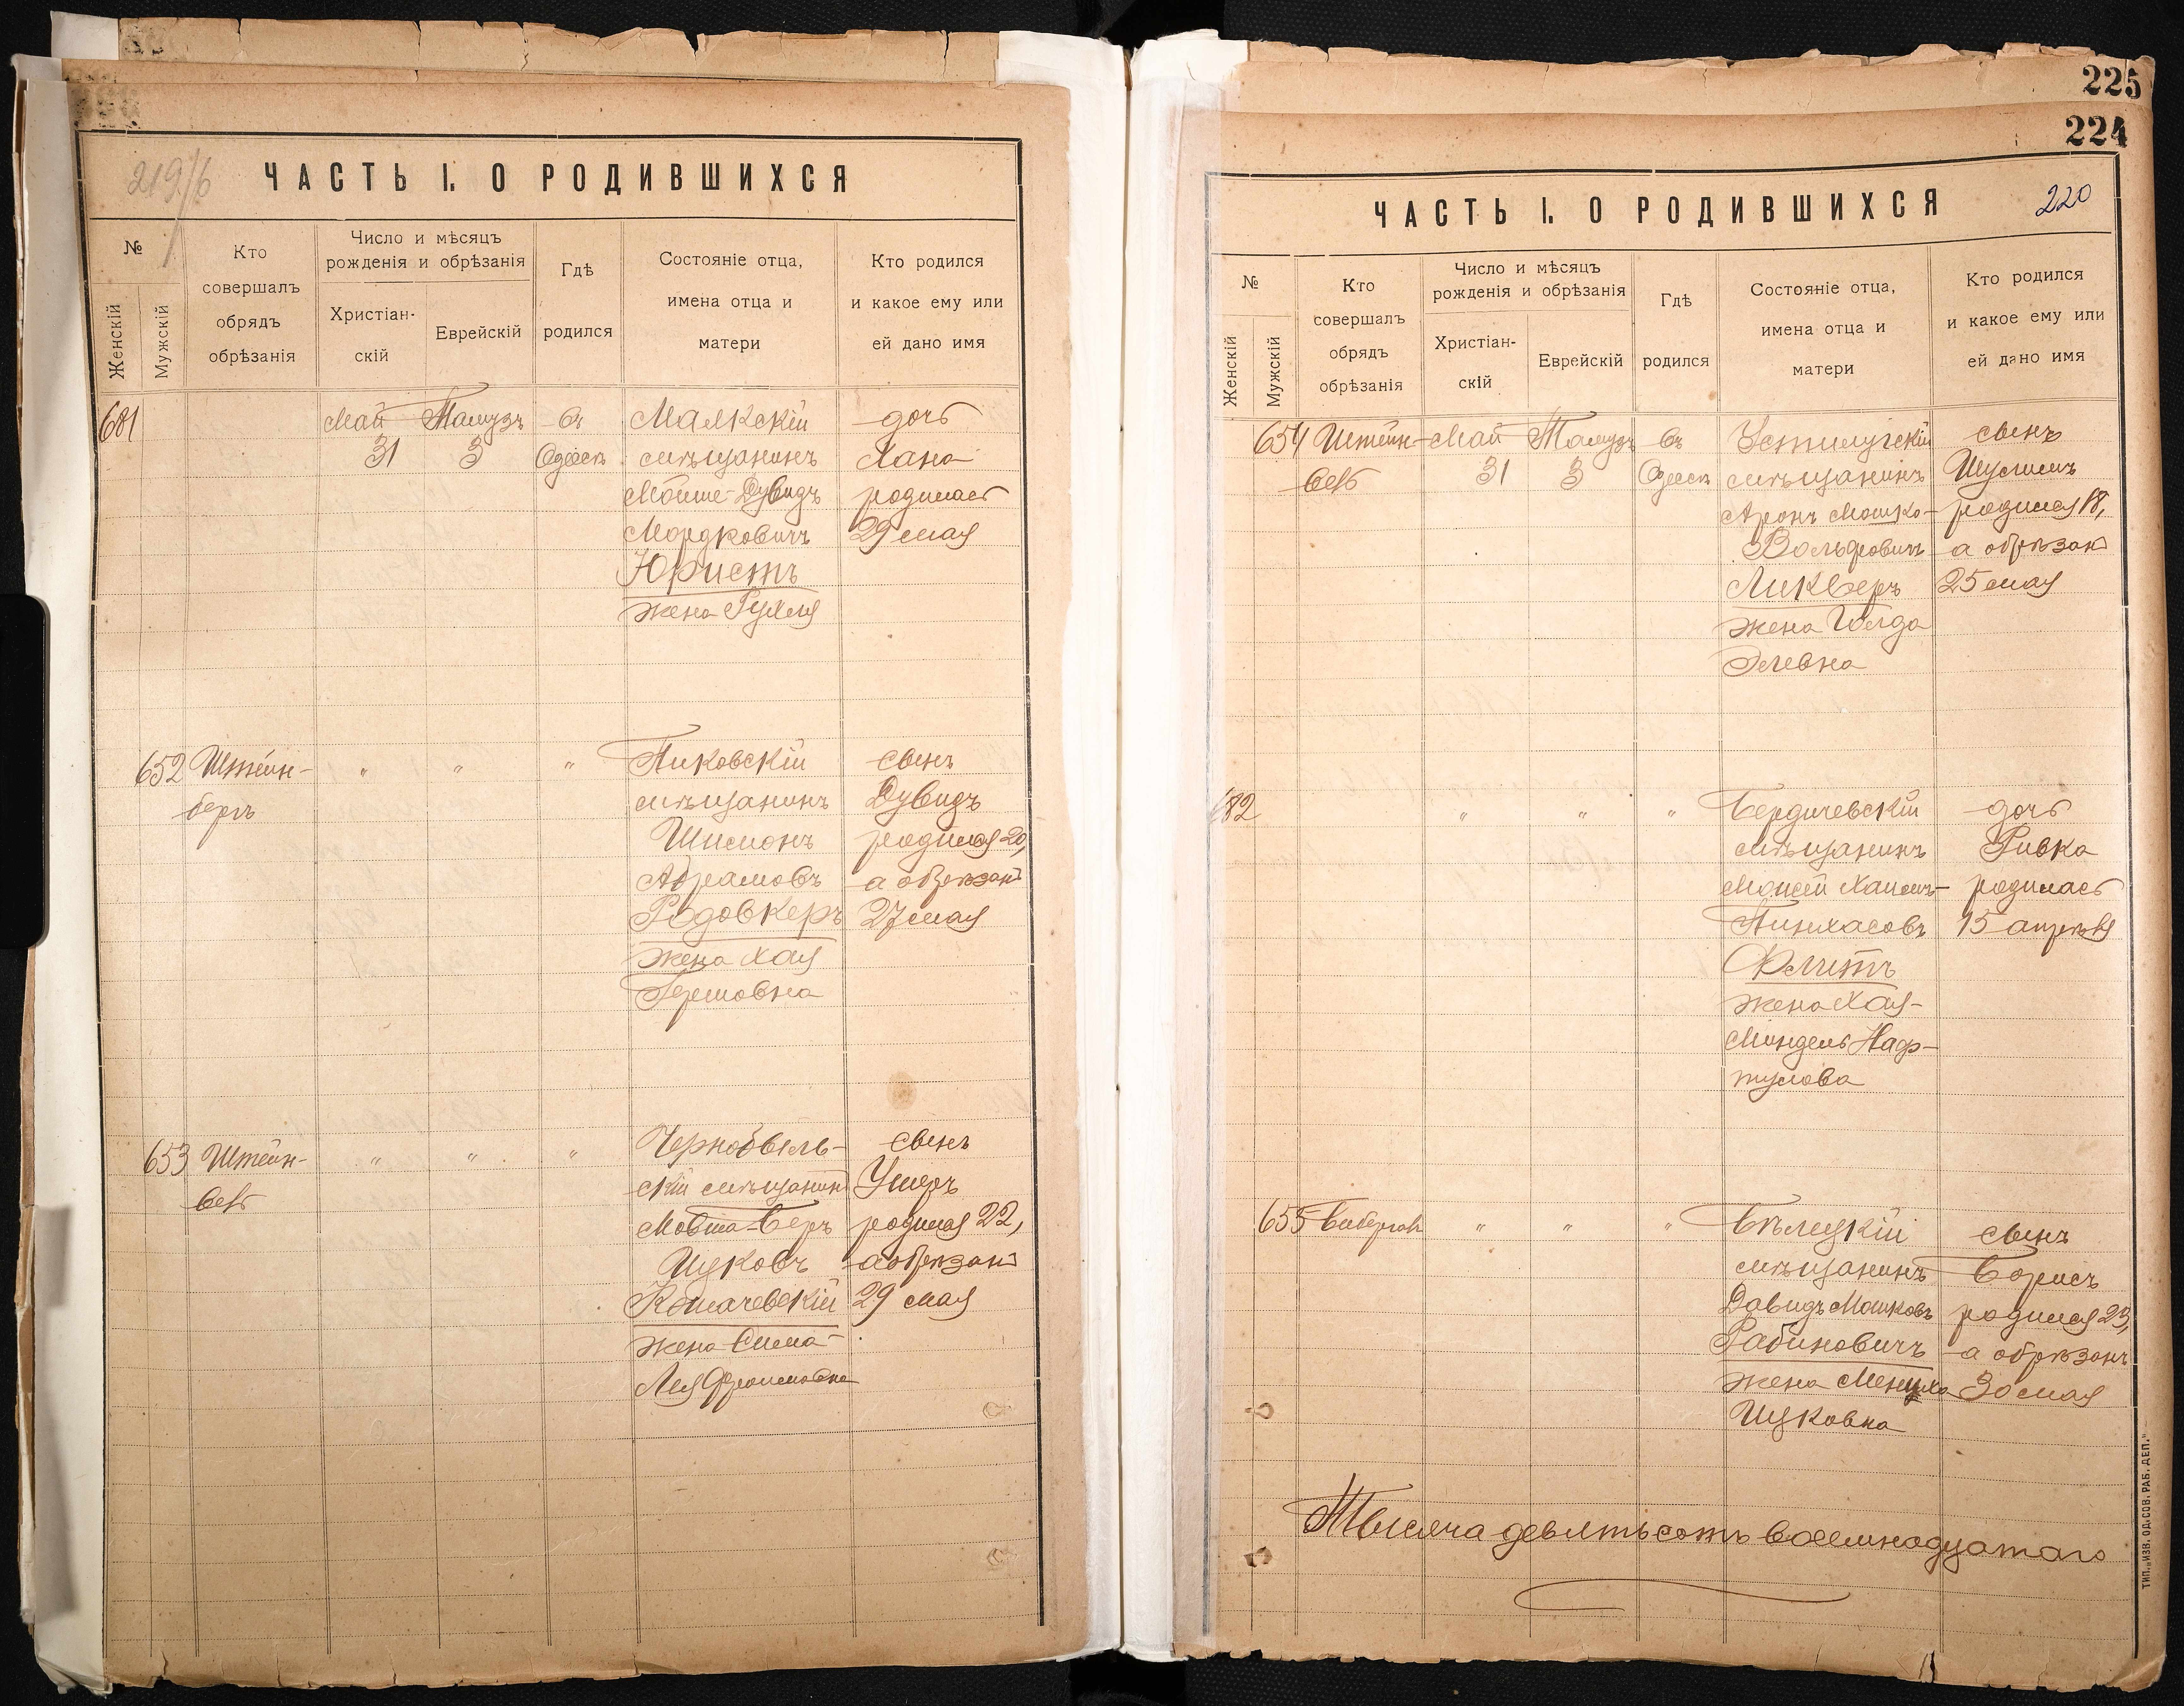 219/б
ЧАСТЬ I. О РОДИВШИХСЯ
№
Женскій
Мужскій
Кто
совершалъ
обрядъ
обрѣзанія
Число и мѣсяцъ
рожденія и обрѣзанія
Христіан-
скій
Еврейскій
Гдѣ
родился
Состояніе отца,
имена отца и
матери
Кто родился
и какое ему или
ей дано имя
681
Май
31
Тамузъ
3
въ
Одессѣ
Малкскій
мѣщанинъ
Мойше-Дувидъ
Мордковичъ
Юристъ
жена Рухля
дочь
Хана
родилась
29 мая
652
Штейн-
бергъ
"
"
"
Пиковскій
мѣщанинъ
Шимонъ
Абрамовъ
Родовкеръ
жена Хая
Гершовна
сынъ
Дувидъ
родился 20,
а обрѣзанъ
27 мая
653
Штейн-
"
"
"
Чернобыль-
скій мѣщанинъ
Мовша-Беръ
Ицковъ
жена Сима-
Лея Фроимовна
сынъ
Ушеръ
родился 22,
а обрѣзанъ
29 мая
225
224
220
ЧАСТЬ I. О РОДИВШИХСЯ
№
Женскій
Мужскій
Кто
совершалъ
обрядъ
обрѣзанія
Число и мѣсяцъ
рожденія и обрѣзанія
Христіан-
скій
Еврейскій
Гдѣ
родился
Состояніе отца,
имена отца и
матери
Кто родился
и какое ему или
ей дано имя
654
Штейн-
Май
31
Тамузъ
3
въ
Одессѣ
Устилугскій
мѣщанинъ
Аронъ Мошко-
Вольфовичъ
Ликверъ
жена Голда
Элевна
сынъ
Шулимъ
родился 18,
а обрѣзанъ
25 мая
682
"
"
"
Бердичевскій
мѣщанинъ
Моисей Хаимъ-
Пинхасовъ
Флитъ
жена Хая-
Миндель Наф-
тулова
дочь
Ривка
родилась
15 апрѣля
655
"
"
"
Бѣлецкій
мѣщанинъ
Давидъ Мошковъ
Рабиновичъ
жена Менуха
Ицковна
сынъ
Борисъ
родился 23,
а обрѣзанъ
30 мая
Тысяча девятьсотъ восемнадцатаго
ТИП. „ИЗВ. ОД. СОВ. РАБ. ДЕП."